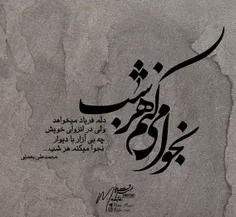 نجوا می کنم هر شب
دلم فریاد میخواهد
ولی در انزوای خویش
چه بی آزار با دیوار
نجوا میکنم هر شب...
محمدعلی بهمنی